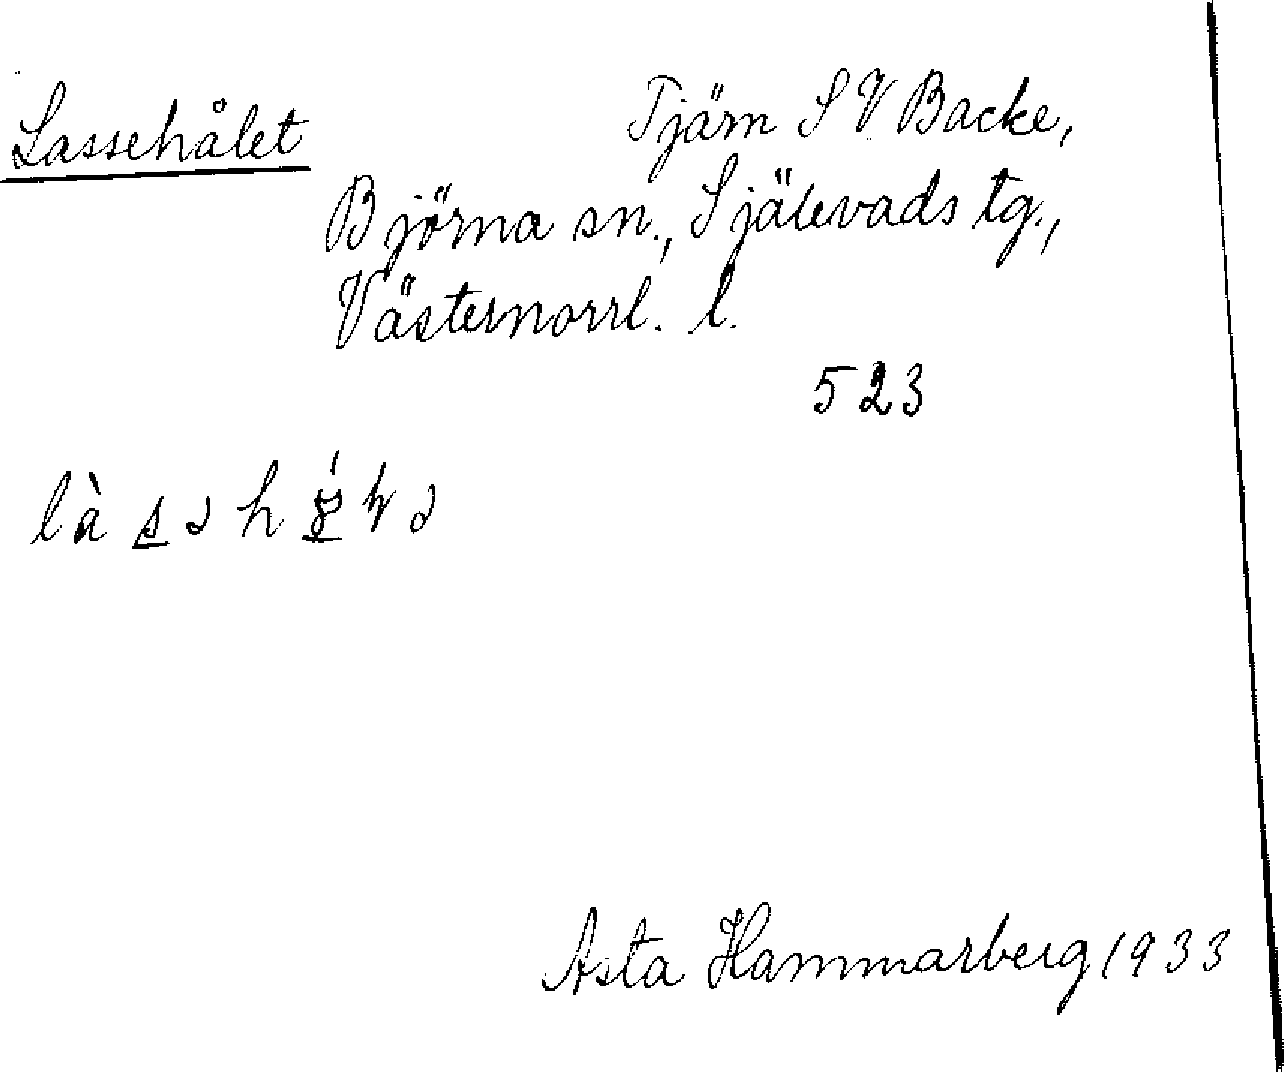 Lassehålet Tjärn SV Backe,
Björna sn., Själevads tg.,
Västernorrl. l.
523
Asta Hammarberg 1933